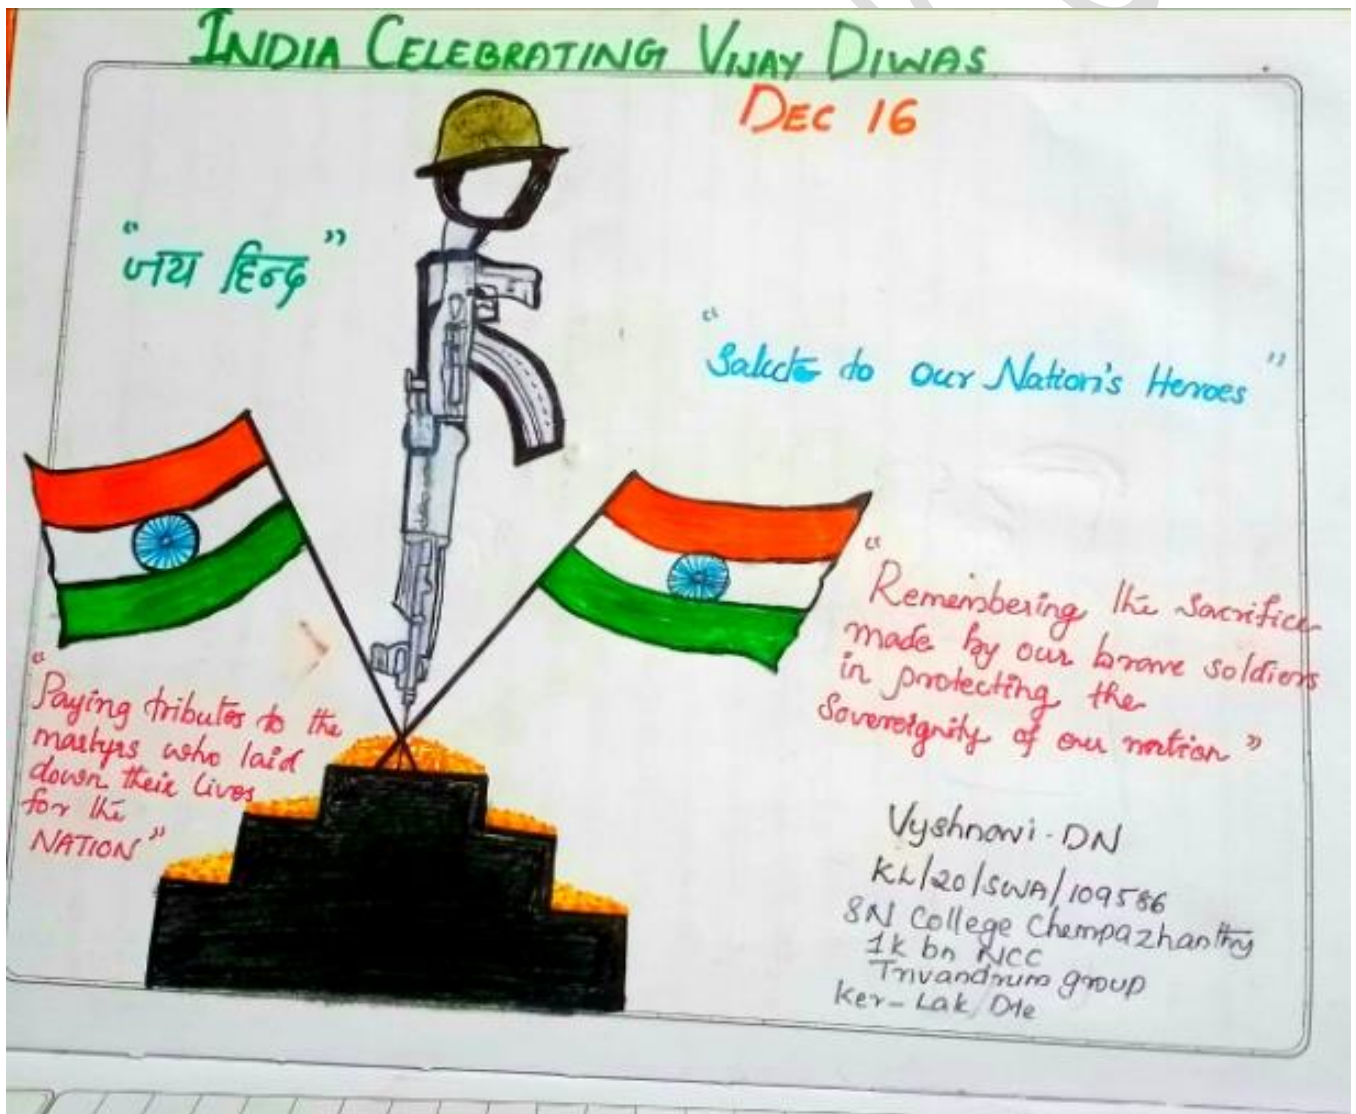 INDIA CELEBRATING VIJAY DIWAS
DEC 16
"जय हिन्द"
"Salute to our Nation's Heroes"
"Remembering the Sacrifice
made by our brave soldiers
in protecting the
Sovereignity of our nation"
"Paying tributes to the
martyrs who laid
down their lives
for the
NATION"
Vyshnavi-DN
KL/20/SWA/109586
SN College Chempazhanthy
1k bn NCC
Trivandrum group
Ker-Lak Dte